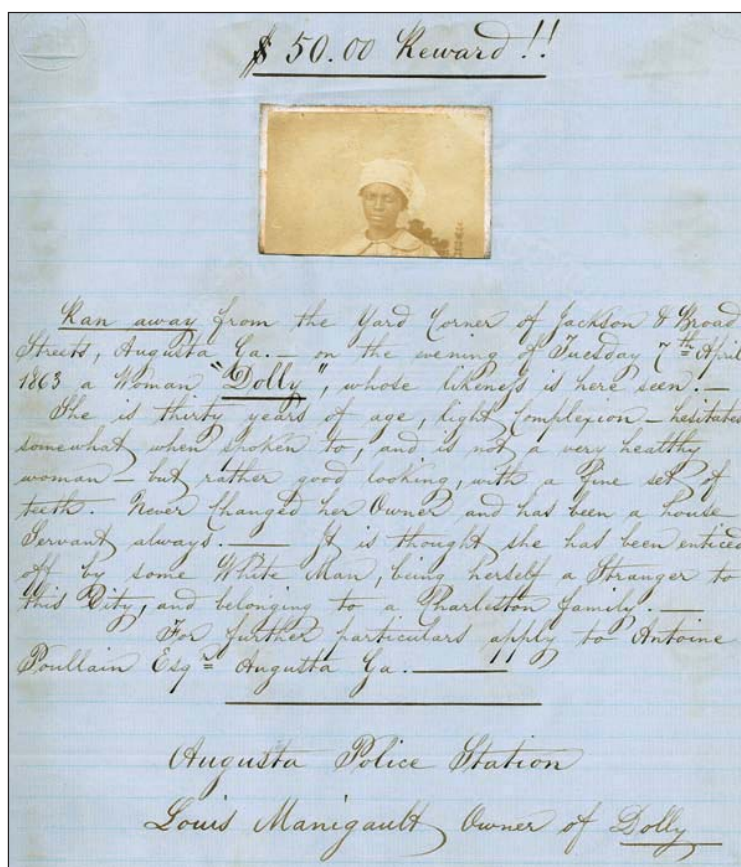 $ 50.00 Reward!!
Ran away from the Yard Corner of Jackson & Broad
Streets, Augusta Ga. — on the evening of Tuesday 7th April
1863 a Woman "Dolly", whose likeness is here seen. —
She is thirty years of age, light Complexion — hesitates
somewhat when spoken to, and is not a very healthy
woman — but rather good looking, with a fine set of
teeth. Never Changed her Owner and has been a house
Servant always. — It is thought she has been enticed
off by some White Man, being herself a Stranger to
this City, and belonging to a Charleston family. —
For further particulars apply to Antoine
Poullain Esqr Augusta Ga. —
Augusta Police Station
Louis Manigault Owner of Dolly